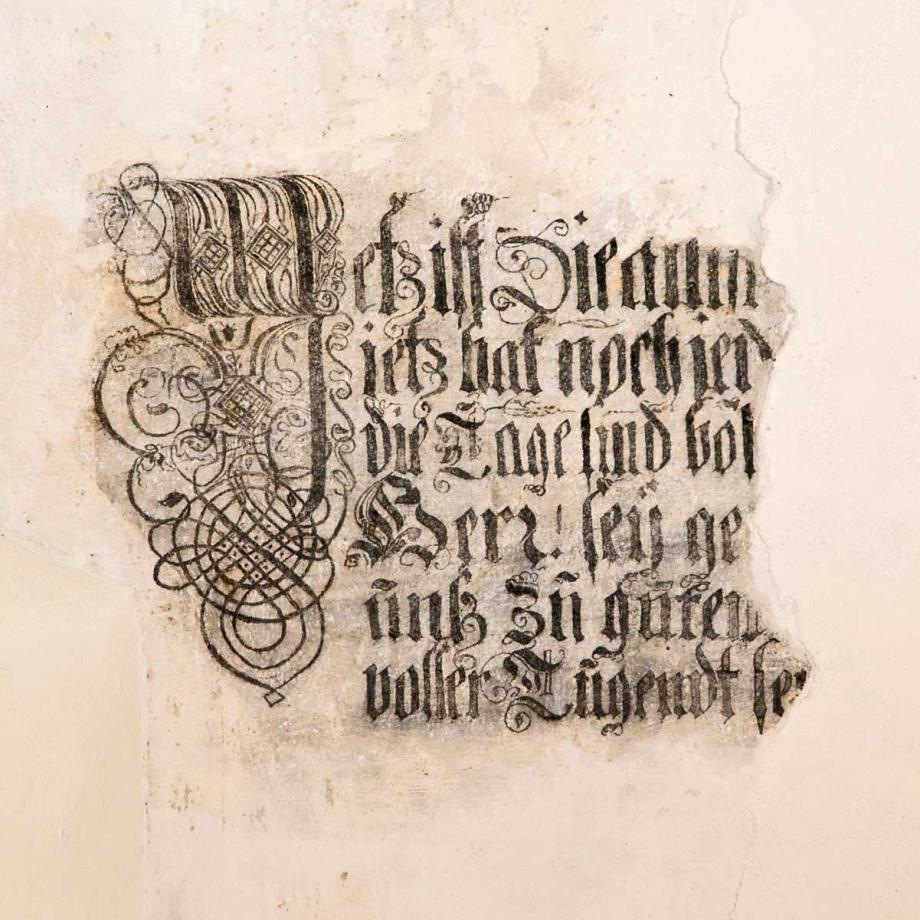 Jetz ist Die gnnn
jetz hat noch jed
die Tage sind bös
Herr! seÿ ge
ünß Zü güten
voller Tügendt se